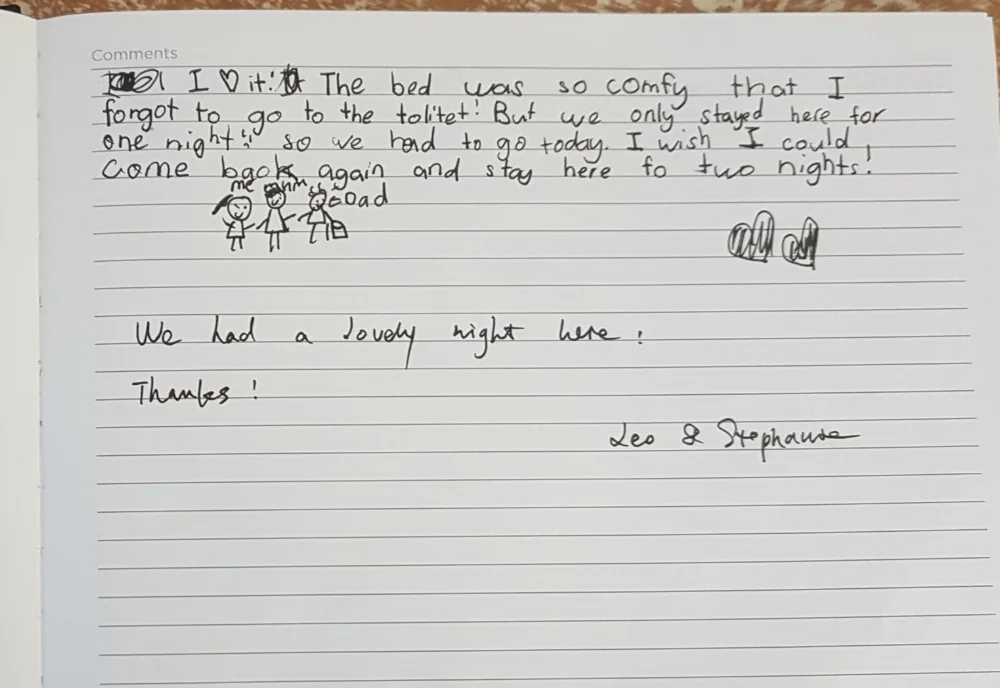 Comments
I ♡ it! The bed was so comfy that I
forgot to go to the tolitet! But we only stayed here for
one night!! so we had to go today. I wish I could
come back again and stay here fo two nights!
me
Dad
We had a lovely night here!
Thanks!
Leo & Stephanie